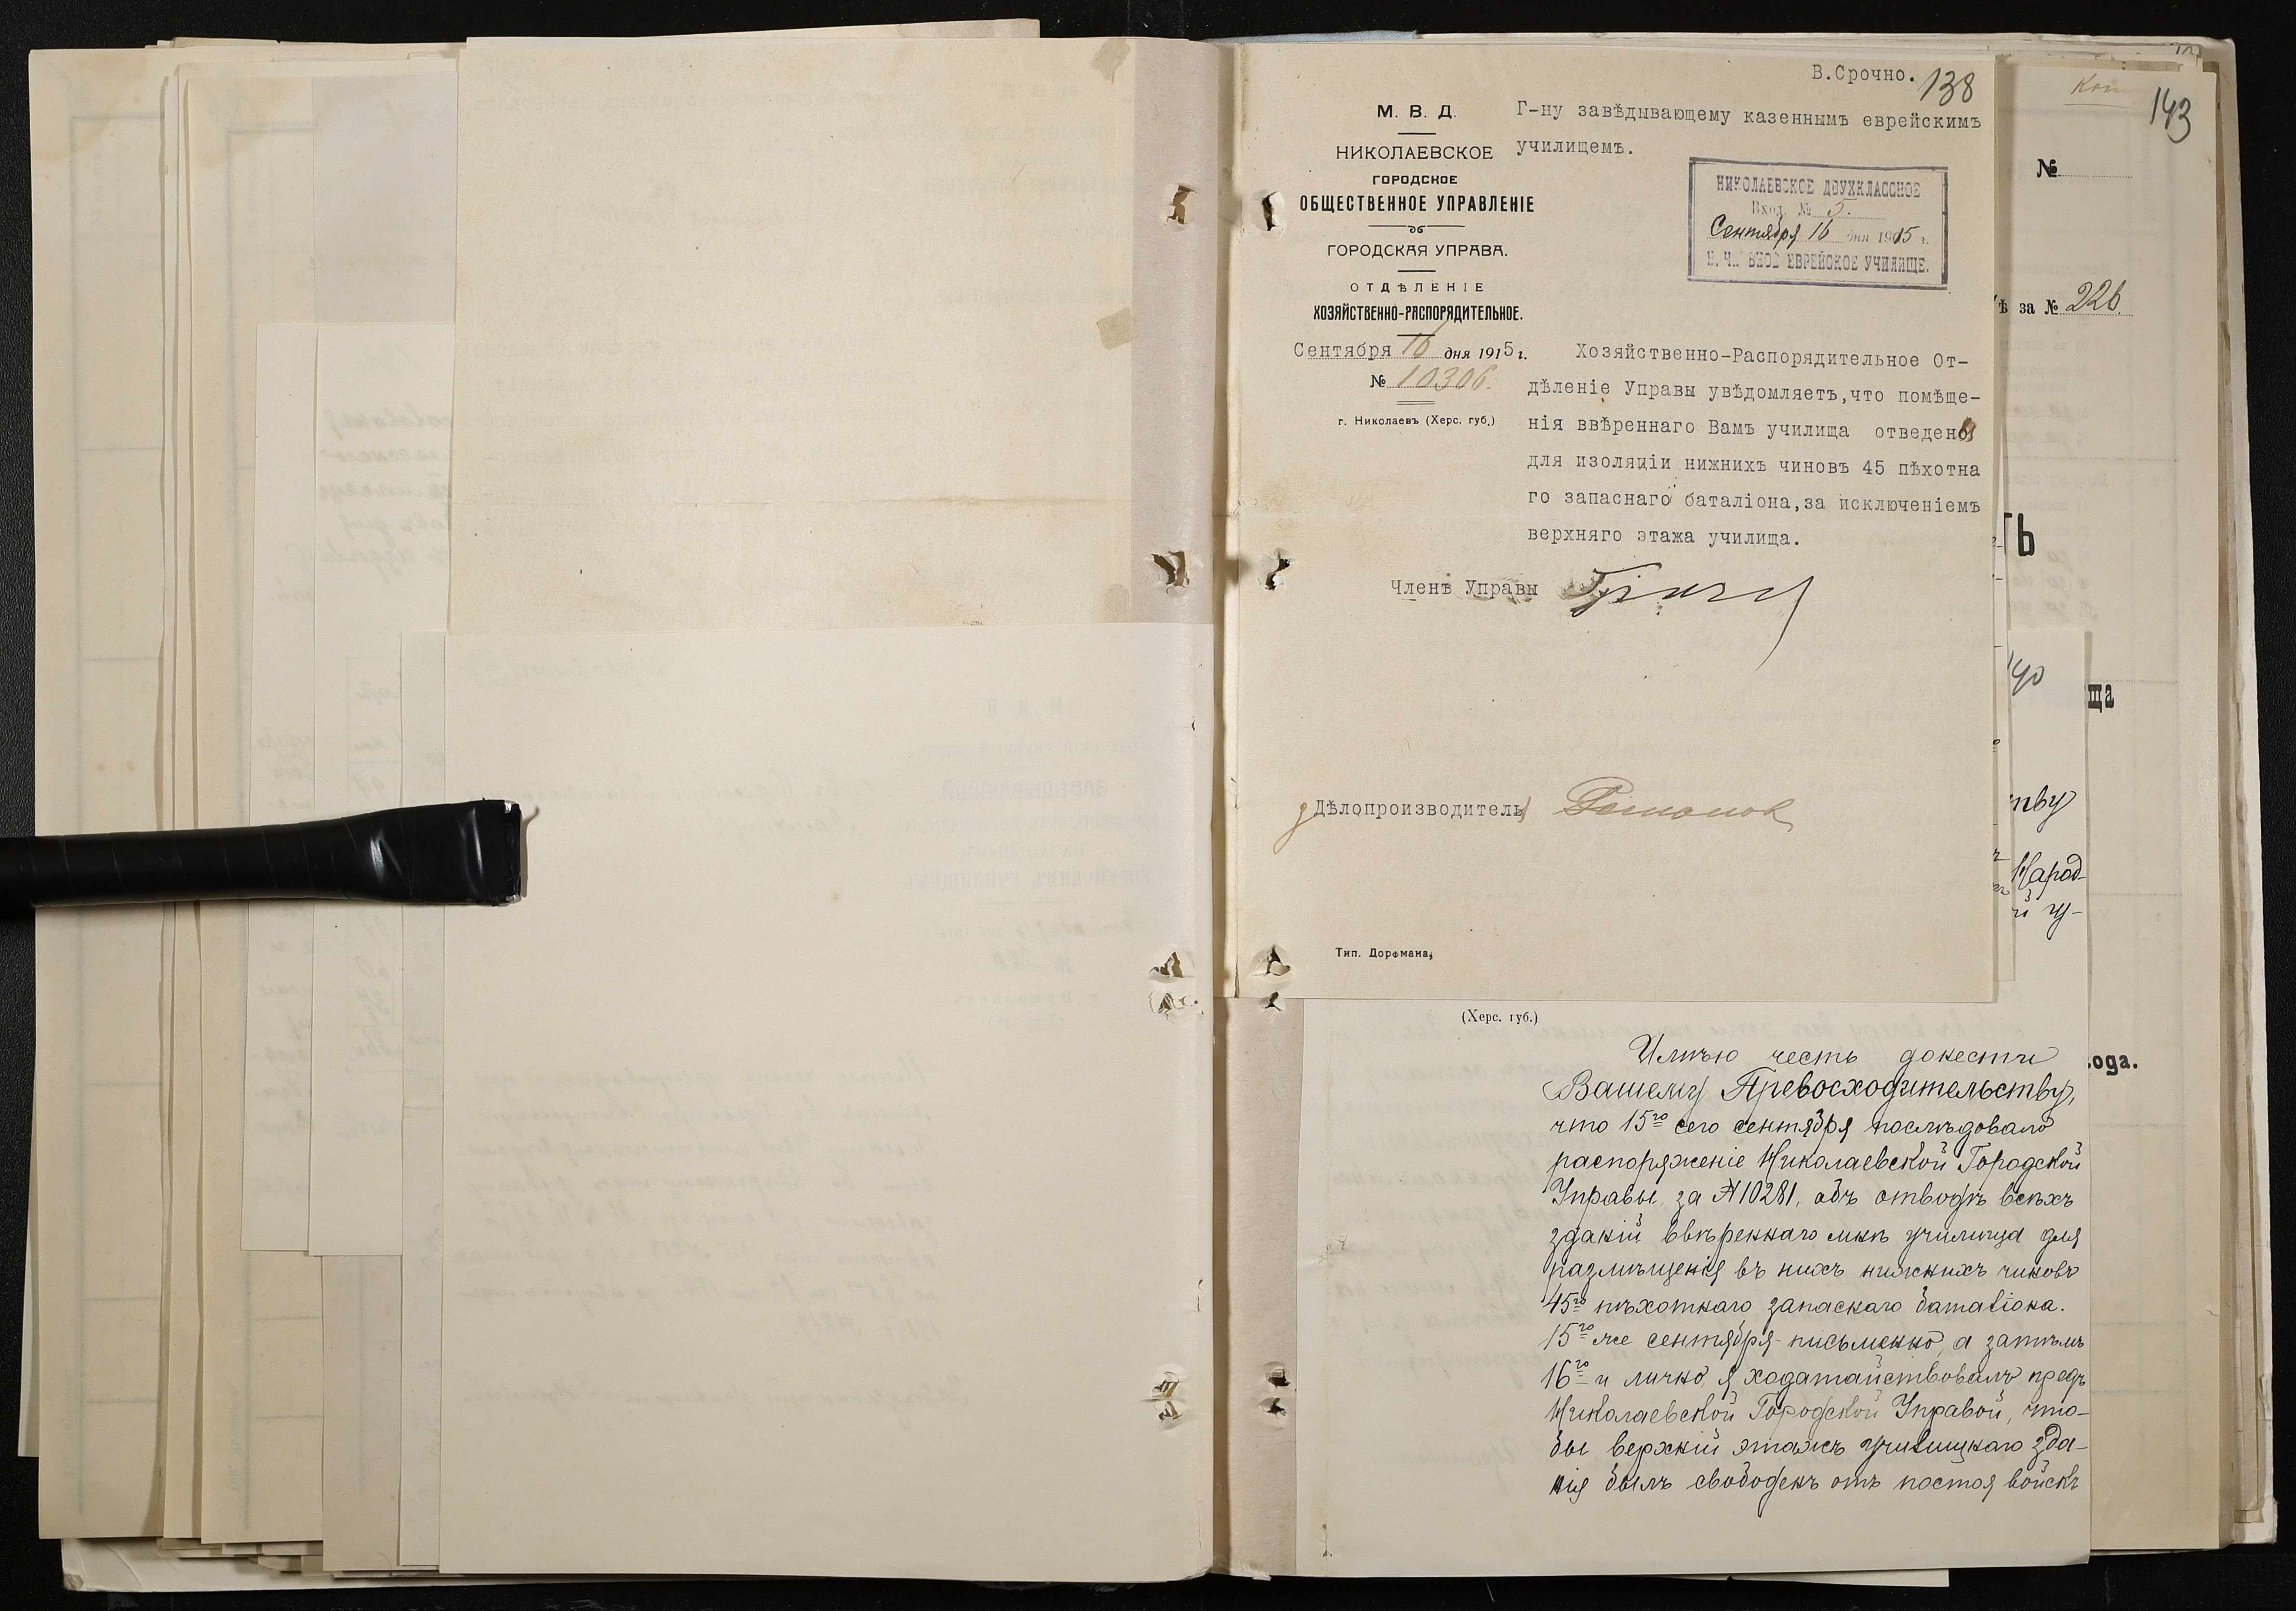 В.Срочно. 138
М. В. Д.
НИКОЛАЕВСКОЕ
ГОРОДСКОЕ
ОБЩЕСТВЕННОЕ УПРАВЛЕНІЕ
ГОРОДСКАЯ УПРАВА.
ОТДѢЛЕНІЕ
ХОЗЯЙСТВЕННО-РАСПОРЯДИТЕЛЬНОЕ.
Сентября 16 дня 1915 г.
№ 10306.
г. Николаевъ (Херс. губ.)
Г-ну завѣдывающему казеннымъ еврейскимъ
училищемъ.
НИКОЛАЕВСКОЕ ДВУХКЛАССНОЕ
Вход. № 5.
Сентября 16 дня 1915 г.
НАЧАЛЬНОЕ ЕВРЕЙСКОЕ УЧИЛИЩЕ.
Хозяйственно-Распорядительное От-
дѣленіе Управы увѣдомляетъ,что помѣще-
нія ввѣреннаго Вамъ училища отведены
для изоляціи нижнихъ чиновъ 45 пѣхотна
го запаснаго баталіона,за исключеніемъ
верхняго этажа училища.
Членъ Управы
Дѣлопроизводитель
Тип. Дорфмана,
(Херс. губ.)
Имѣю честь донести
Вашему Превосходительству,
что 15го сего сентября послѣдовало
распоряженіе Николаевской Городской
Управы за №10281, объ отводѣ всѣхъ
зданій ввѣреннаго мнѣ училища для
размѣщенія въ нихъ нижнихъ чиновъ
45го пѣхотнаго запаснаго баталіона.
15го же сентября письменно, а затѣмъ
16го и лично, я ходатайствовалъ предъ
Николаевской Городской Управой, что-
бы верхній этажъ училищнаго зда-
нія былъ свободенъ отъ постоя войскъ
143
№
ѣ за № 226.
ТЬ
140
ща
тву
Народ-
й у-
ода.